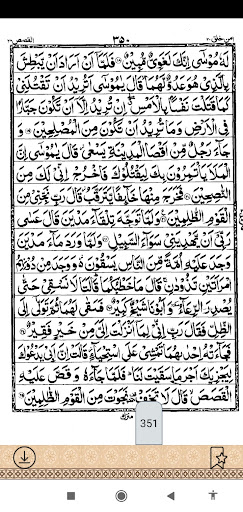 القصص ٣٥٠ امن خلق
لَهٗ مُوْسٰۤى اِنَّكَ لَغَوِىٌّ مُّبِيْنٌ فَلَمَّاۤ اَنْ اَرَادَ اَنْ يَّبْطِشَ
بِالَّذِىْ هُوَ عَدُوٌّ لَّهُمَا قَالَ يٰمُوْسٰۤى اَتُرِيْدُ اَنْ تَقْتُلَنِىْ
كَمَا قَتَلْتَ نَفْسًۢا بِالْاَمْسِ اِنْ تُرِيْدُ اِلَّاۤ اَنْ تَكُوْنَ جَبَّارًا
فِى الْاَرْضِ وَمَا تُرِيْدُ اَنْ تَكُوْنَ مِنَ الْمُصْلِحِيْنَ وَ
جَآءَ رَجُلٌ مِّنْ اَقْصَا الْمَدِيْنَةِ يَسْعٰى قَالَ يٰمُوْسٰۤى اِنَّ
الْمَلَاَ يَاْتَمِرُوْنَ بِكَ لِيَقْتُلُوْكَ فَاخْرُجْ اِنِّىْ لَكَ مِنَ
النّٰصِحِيْنَ فَخَرَجَ مِنْهَا خَآئِفًا يَّتَرَقَّبُ قَالَ رَبِّ نَجِّنِىْ مِنَ
الْقَوْمِ الظّٰلِمِيْنَ وَلَمَّا تَوَجَّهَ تِلْقَآءَ مَدْيَنَ قَالَ عَسٰى
رَبِّىْۤ اَنْ يَّهْدِيَنِىْ سَوَآءَ السَّبِيْلِ وَلَمَّا وَرَدَ مَآءَ مَدْيَنَ
وَجَدَ عَلَيْهِ اُمَّةً مِّنَ النَّاسِ يَسْقُوْنَ وَوَجَدَ مِنْ دُوْنِهِمُ
امْرَاَتَيْنِ تَذُوْدٰنِ قَالَ مَا خَطْبُكُمَا قَالَتَا لَا نَسْقِىْ حَتّٰى
يُصْدِرَ الرِّعَآءُ وَاَبُوْنَا شَيْخٌ كَبِيْرٌ فَسَقٰى لَهُمَا ثُمَّ تَوَلّٰۤى اِلَى
الظِّلِّ فَقَالَ رَبِّ اِنِّىْ لِمَاۤ اَنْزَلْتَ اِلَىَّ مِنْ خَيْرٍ فَقِيْرٌ
فَجَآءَتْهُ اِحْدٰىهُمَا تَمْشِىْ عَلَى اسْتِحْيَآءٍ قَالَتْ اِنَّ اَبِىْ يَدْعُوْكَ
لِيَجْزِيَكَ اَجْرَ مَا سَقَيْتَ لَنَا فَلَمَّا جَآءَهٗ وَقَصَّ عَلَيْهِ
الْقَصَصَ قَالَ لَا تَخَفْ نَجَوْتَ مِنَ الْقَوْمِ الظّٰلِمِيْنَ
351